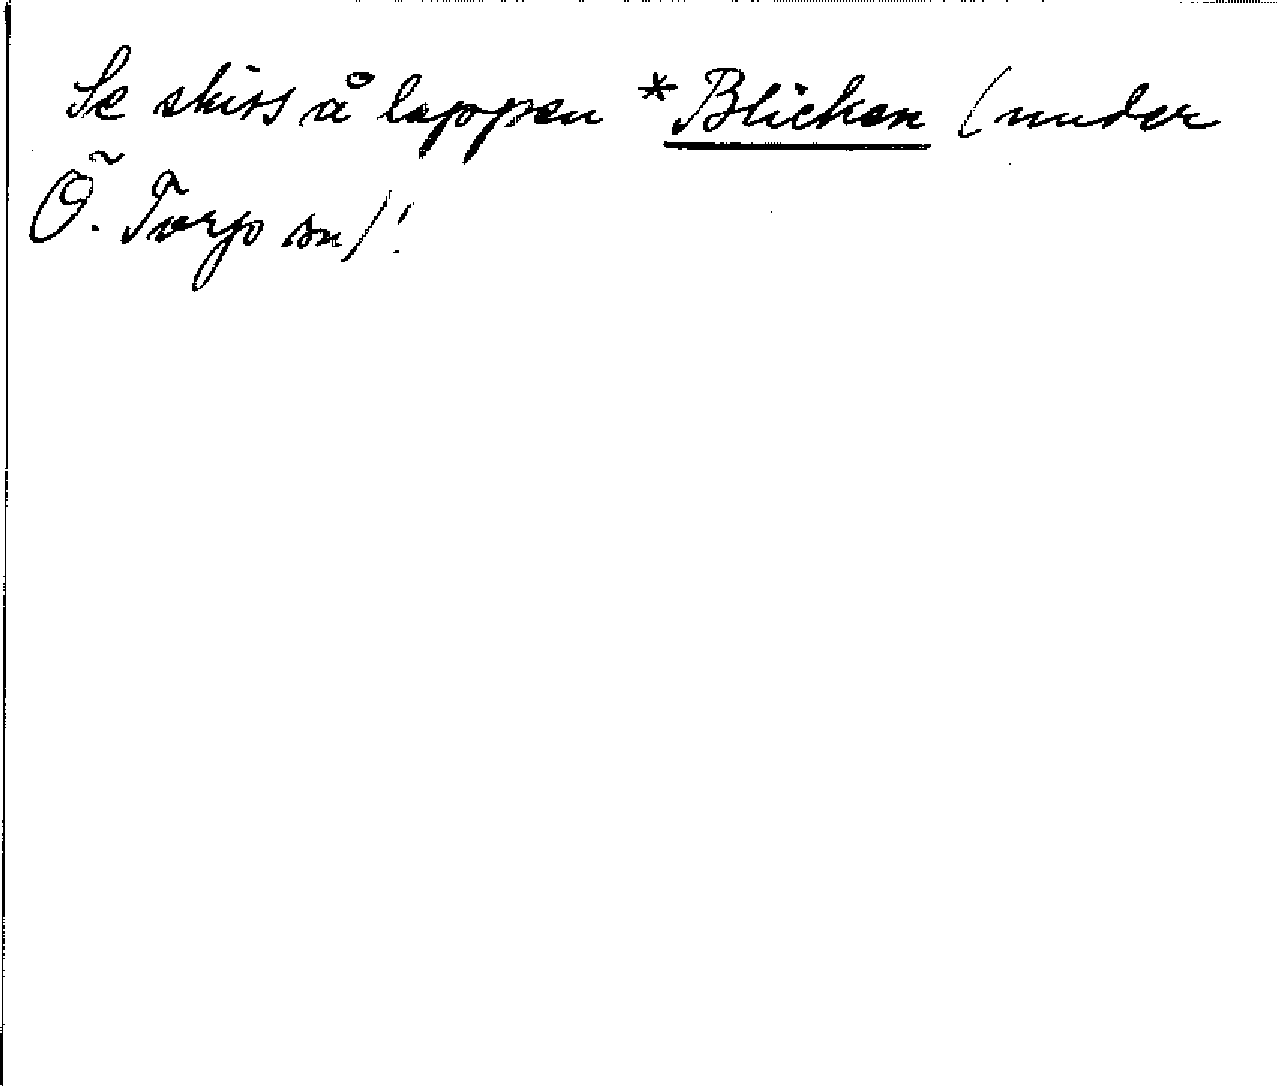 Se skiss å lappen *Blicken (under
Ö. Torp sn)!